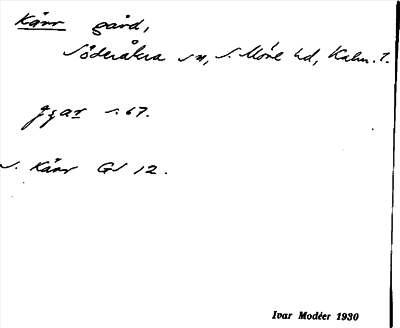 Kärr gård,
Söderåkra sn, S. Möre hd, Kalm. l.
Jgar s. 67.
S. Kärr GS 12.
Ivar Modéer 1930